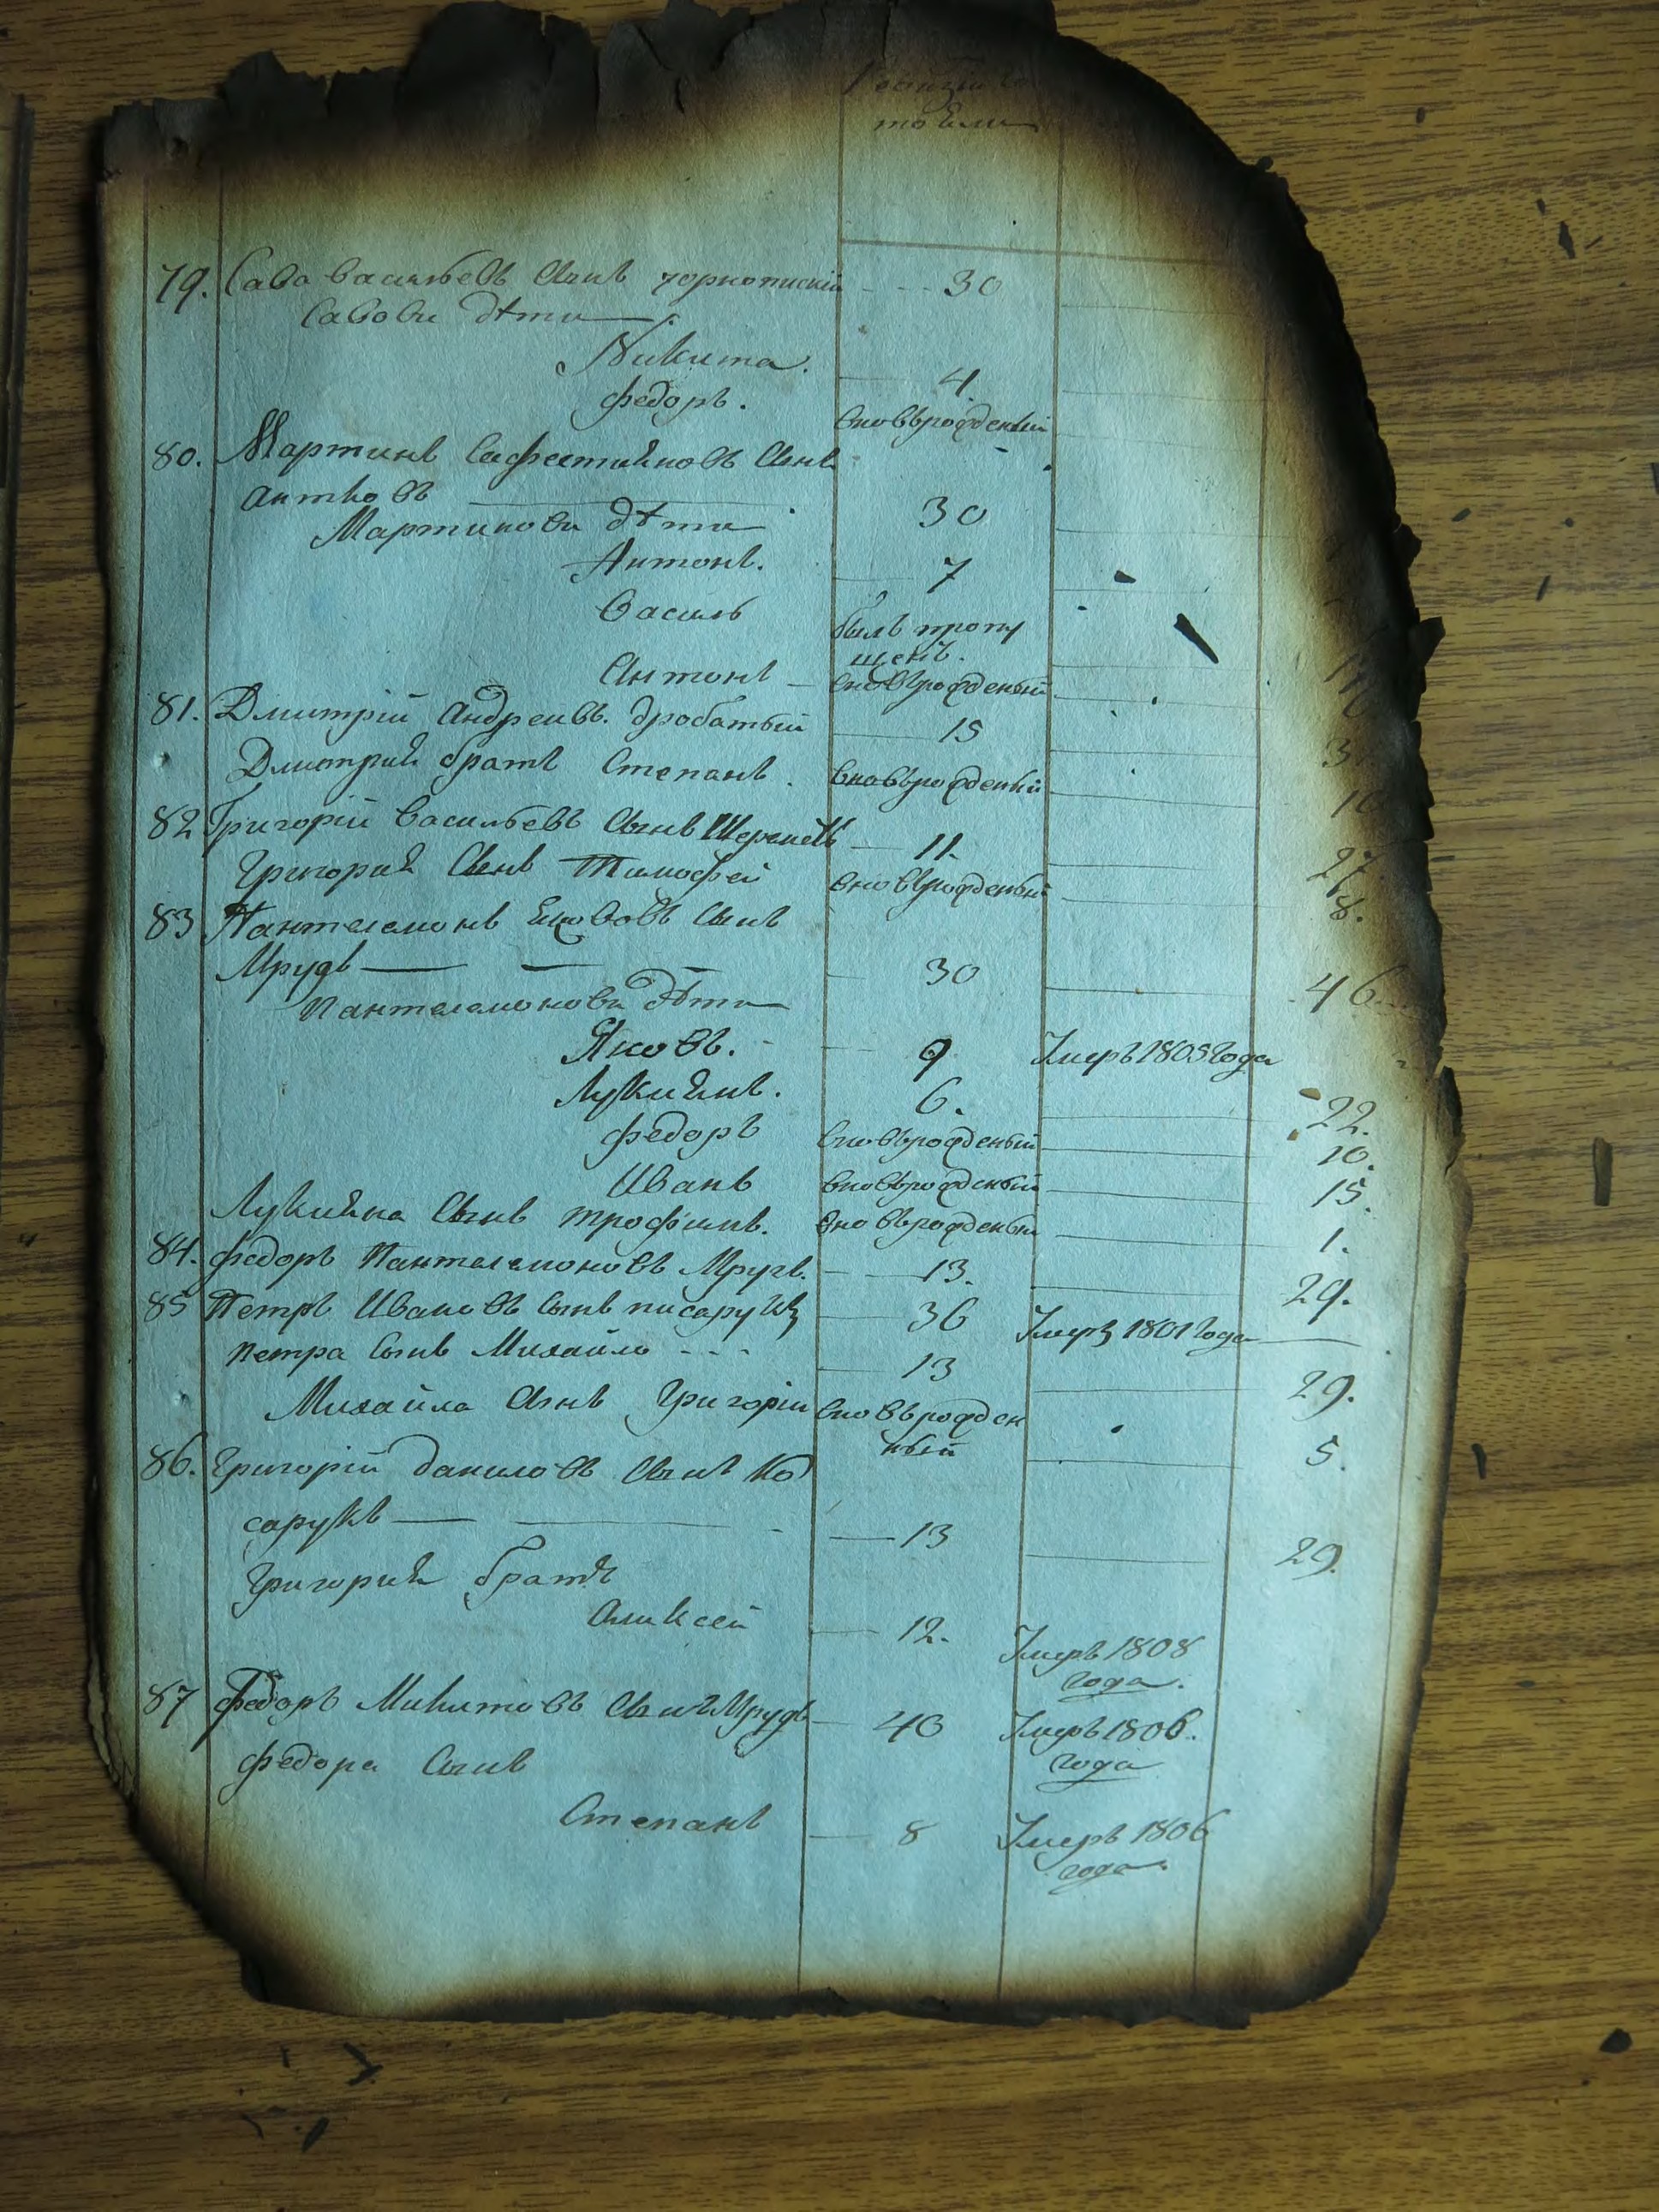 то были
79. Сава Васильевъ сынъ чорнопискій - - - 30
Савови дѣти
Никита. 4.
Федоръ. вновърожденый
80. Мартинъ сынъ
Антковъ 30
Мартинови дѣти
Антонъ. 7
Василь былъ пропу
щенъ.
Антонъ вновърожденый
81. Дмитрій Андреивъ. дробатый 15
Дмитрия братъ Степанъ. вновърожденый
82 Григорій Васильевъ сынъ 11. 27
Григория сынъ Тимофей вновърожденый 8.
83 Пантелемонъ сынъ
Мрудъ 30 46
Пантелемонови дѣти
Яковъ. 9 Умеръ 1805 года
Лукиянъ. 6. 22.
Федоръ вновърожденый 10.
Иванъ вновърожденый 15.
Лукияна сынъ трофимъ. вновърожденый 1.
84. Федоръ Пантелемоновъ 13. 29.
85 Петръ Ивановъ сынъ писарукъ 36 Умеръ 1801 года
Петра сынъ Михайло - - - 13 29.
Михайла сынъ Григорій вновърожден
ный 5.
86. Григорій даниловъ сынъ Ко
сарукъ 13 29.
Григория братъ
Аликсей 12. Умеръ 1808
года.
87 Федоръ Микитовъ сынъ Мрудъ 40 Умеръ 1806.
года
Федора сынъ
Степанъ 8 Умеръ 1806
года.